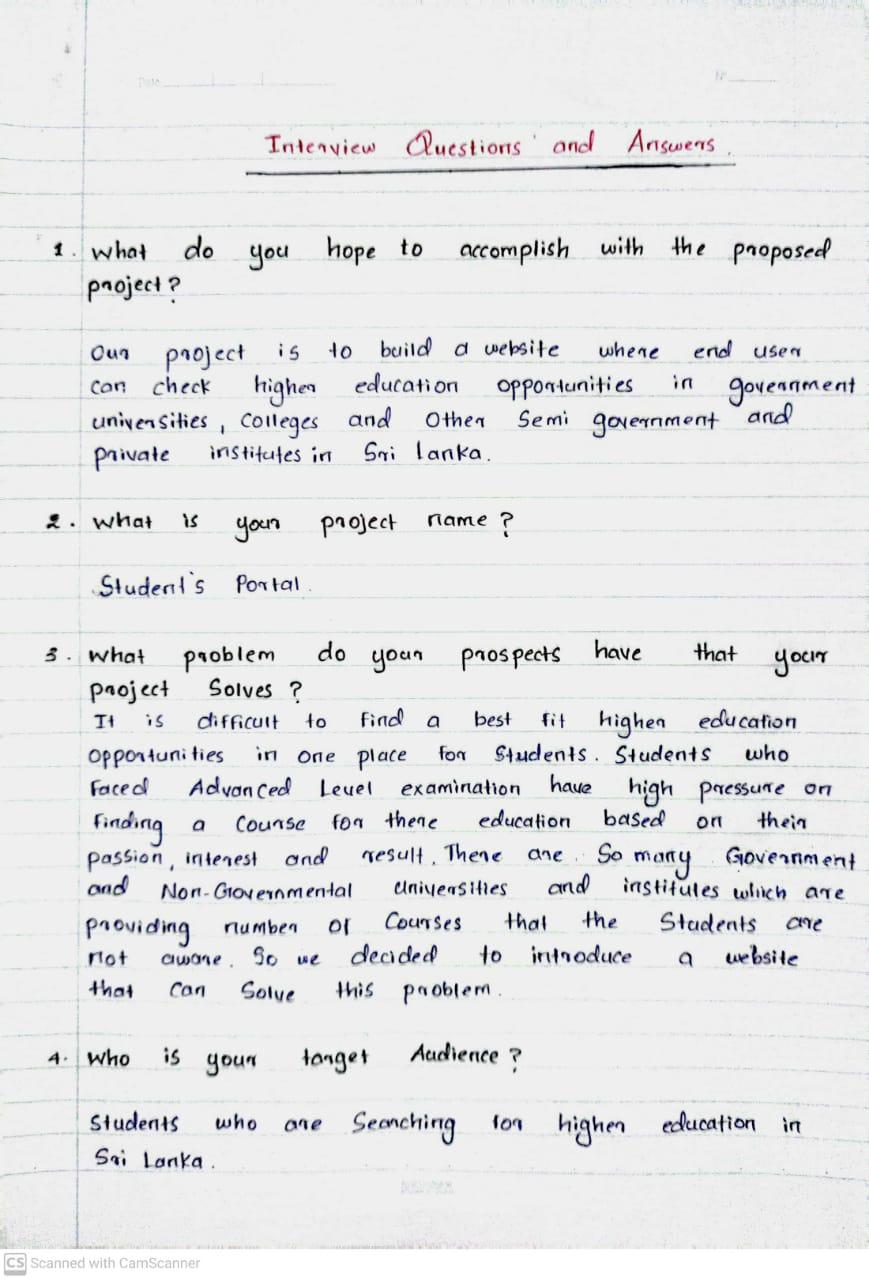 Interview Questions and Answers.
1. What do you hope to accomplish with the proposed
project?
Our project is to build a website where end user
can check higher education opportunities in government
universities, Colleges and Other Semi government and
private institutes in Sri Lanka.
2. What is your project name?
Student's Portal.
3. What problem do your prospects have that your
project Solves?
It is difficult to find a best fit higher education
Opportunities in one place for Students. Students who
faced Advanced Level examination have high pressure on
finding a Course for there education based on their
passion, interest and result. There are So many Government
and Non-Governmental Universities and institutes which are
providing number of Courses that the Students are
not aware. So we decided to introduce a website
that can Solve this problem.
4. Who is your target Audience?
Students who are Searching for higher education in
Sri Lanka.
CS Scanned with CamScanner